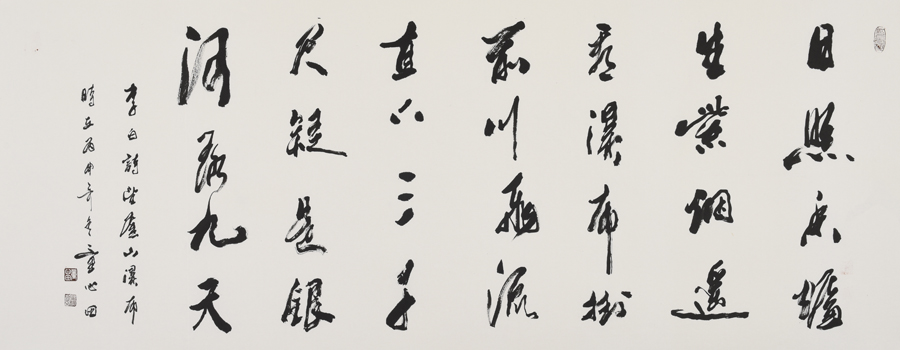 日照香爐
生紫烟遥
看瀑布掛
前川飛流
直下三千
尺疑是銀
河落九天
李白詩望廬山瀑布
時在丙申年心田